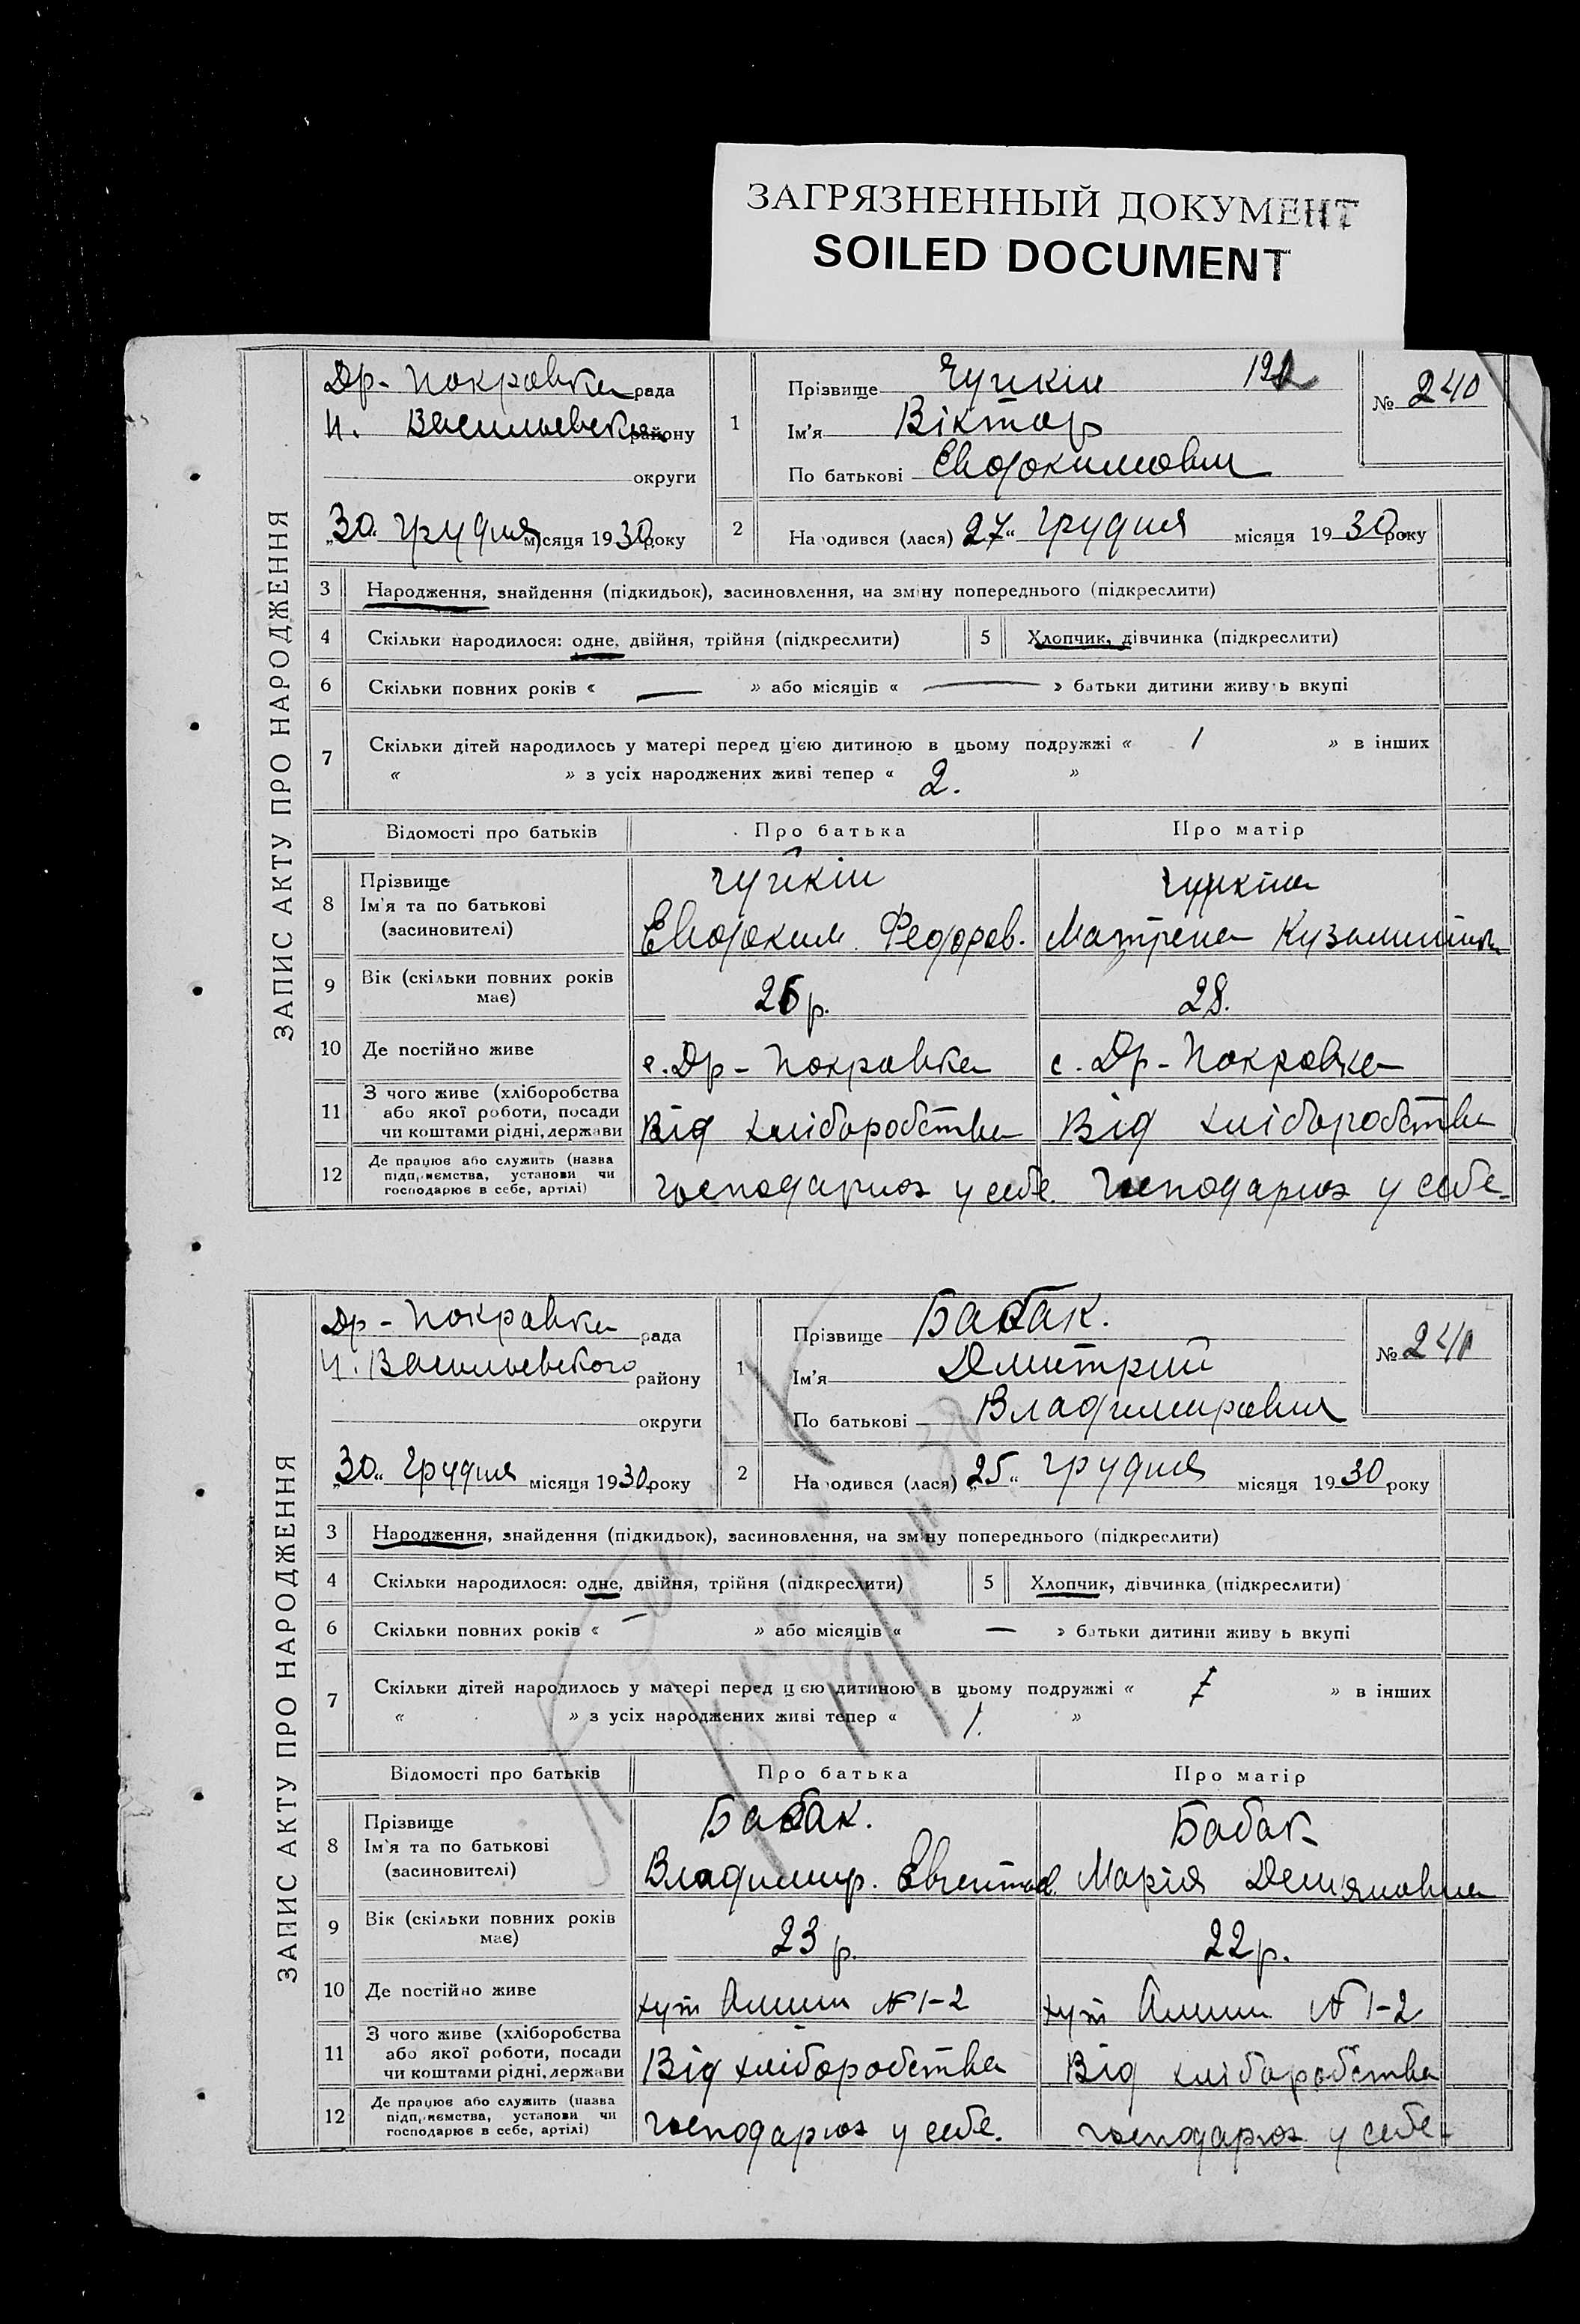 ЗАГРЯЗНЕННЫЙ ДОКУМЕНТ
SOILED DOCUMENT
ЗАПИС АКТУ ПРО НАРОДЖЕННЯ
Др- Покровка рада
Н. Васильевск району
округи
„30“ Грудня місяця 1930 року
1
Прізвище
Ім'я Віктор
По батькові Евдокимович
№ 240
2
Народився (лася) „27“ Грудня місяця 1930 року
3 Народження, знайдення (підкидьок), засиновлення, на зміну попереднього (підкреслити)
4 Скільки народилося: одне, двійня, трійня (підкреслити)
5 Хлопчик, дівчинка (підкреслити)
6 Скільки повних років « — » або місяців « — » батьки дитини живуть вкупі
7 Скільки дітей народилось у матері перед цією дитиною в цьому подружжі « 1 » в інших
« » з усіх народжених живі тепер « 2. »
Відомості про батьків Про батька Про матір
8 Прізвище
Ім'я та по батькові
(засиновителі)
Евдоким Федоров.
Матрена
9 Вік (скільки повних років
має)
26 р.
28.
10 Де постійно живе с. Др- Покровка с. Др- Покровка
11 З чого живе (хліборобства
або якої роботи, посади
чи коштами рідні, держави
Від хліборобства Від хліборобства
12 Де працює або служить (назва
підприємства, установи чи
господарює в себе, артілі)
господарює у себе. господарює у себе.
ЗАПИС АКТУ ПРО НАРОДЖЕННЯ
Др- Покровка рада
Н. Васильевского району
округи
„30“ Грудня місяця 1930 року
1
Прізвище Бабак.
Ім'я Дмитрий
По батькові Владимирович
№ 241
2
Народився (лася) „25“ грудня місяця 1930 року
3 Народження, знайдення (підкидьок), засиновлення, на зміну попереднього (підкреслити)
4 Скільки народилося: одне, двійня, трійня (підкреслити)
5 Хлопчик, дівчинка (підкреслити)
6 Скільки повних років « — » або місяців « — » батьки дитини живуть вкупі
7 Скільки дітей народилось у матері перед цією дитиною в цьому подружжі « » в інших
« » з усіх народжених живі тепер « 1. »
Відомості про батьків Про батька Про матір
8 Прізвище
Ім'я та по батькові
(засиновителі)
Бабак. Бабак
Владимир. Марія Демяновна
9 Вік (скільки повних років
має)
23 р. 22 р.
10 Де постійно живе хут № 1-2 хут № 1-2
11 З чого живе (хліборобства
або якої роботи, посади
чи коштами рідні, держави
Від хліборобства Від хліборобства
12 Де працює або служить (назва
підприємства, установи чи
господарює в себе, артілі)
господарює у себе. господарює у себе.